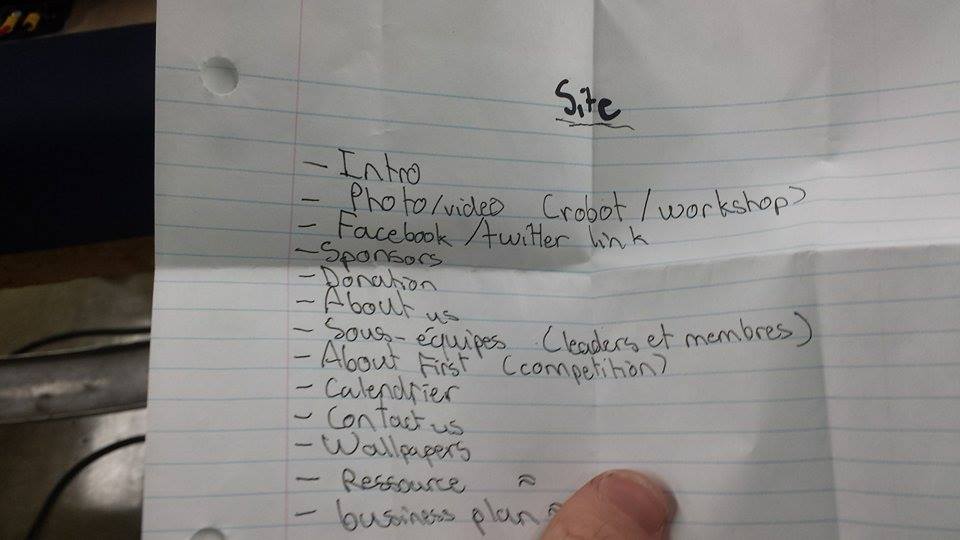 Site
- Intro
- Photo/video (robot/workshop)
- Facebook/twitter link
- Sponsors
- Donation
- About us
- Sous-équipes (leaders et membres)
- About First (competition)
- Calendrier
- Contact us
- Wallpapers
- Ressource ≈
- bussiness plan ≈